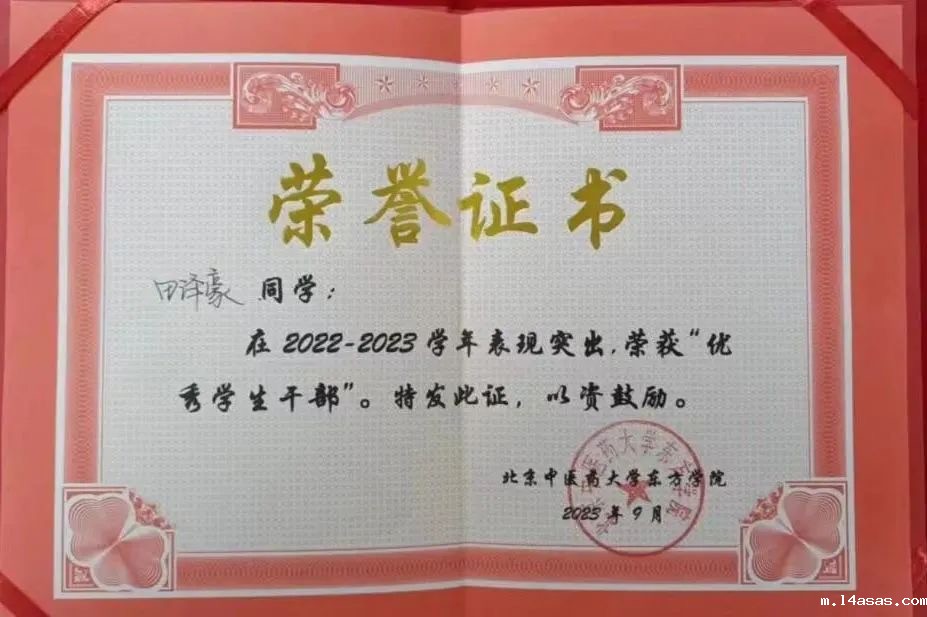 荣誉证书
田泽豪 同学：
在2022-2023学年表现突出,荣获“优
秀学生干部”。特发此证，以资鼓励。
北京中医药大学东方学院
2023年9月
北京中医药大学东方学院
m.14asas.com